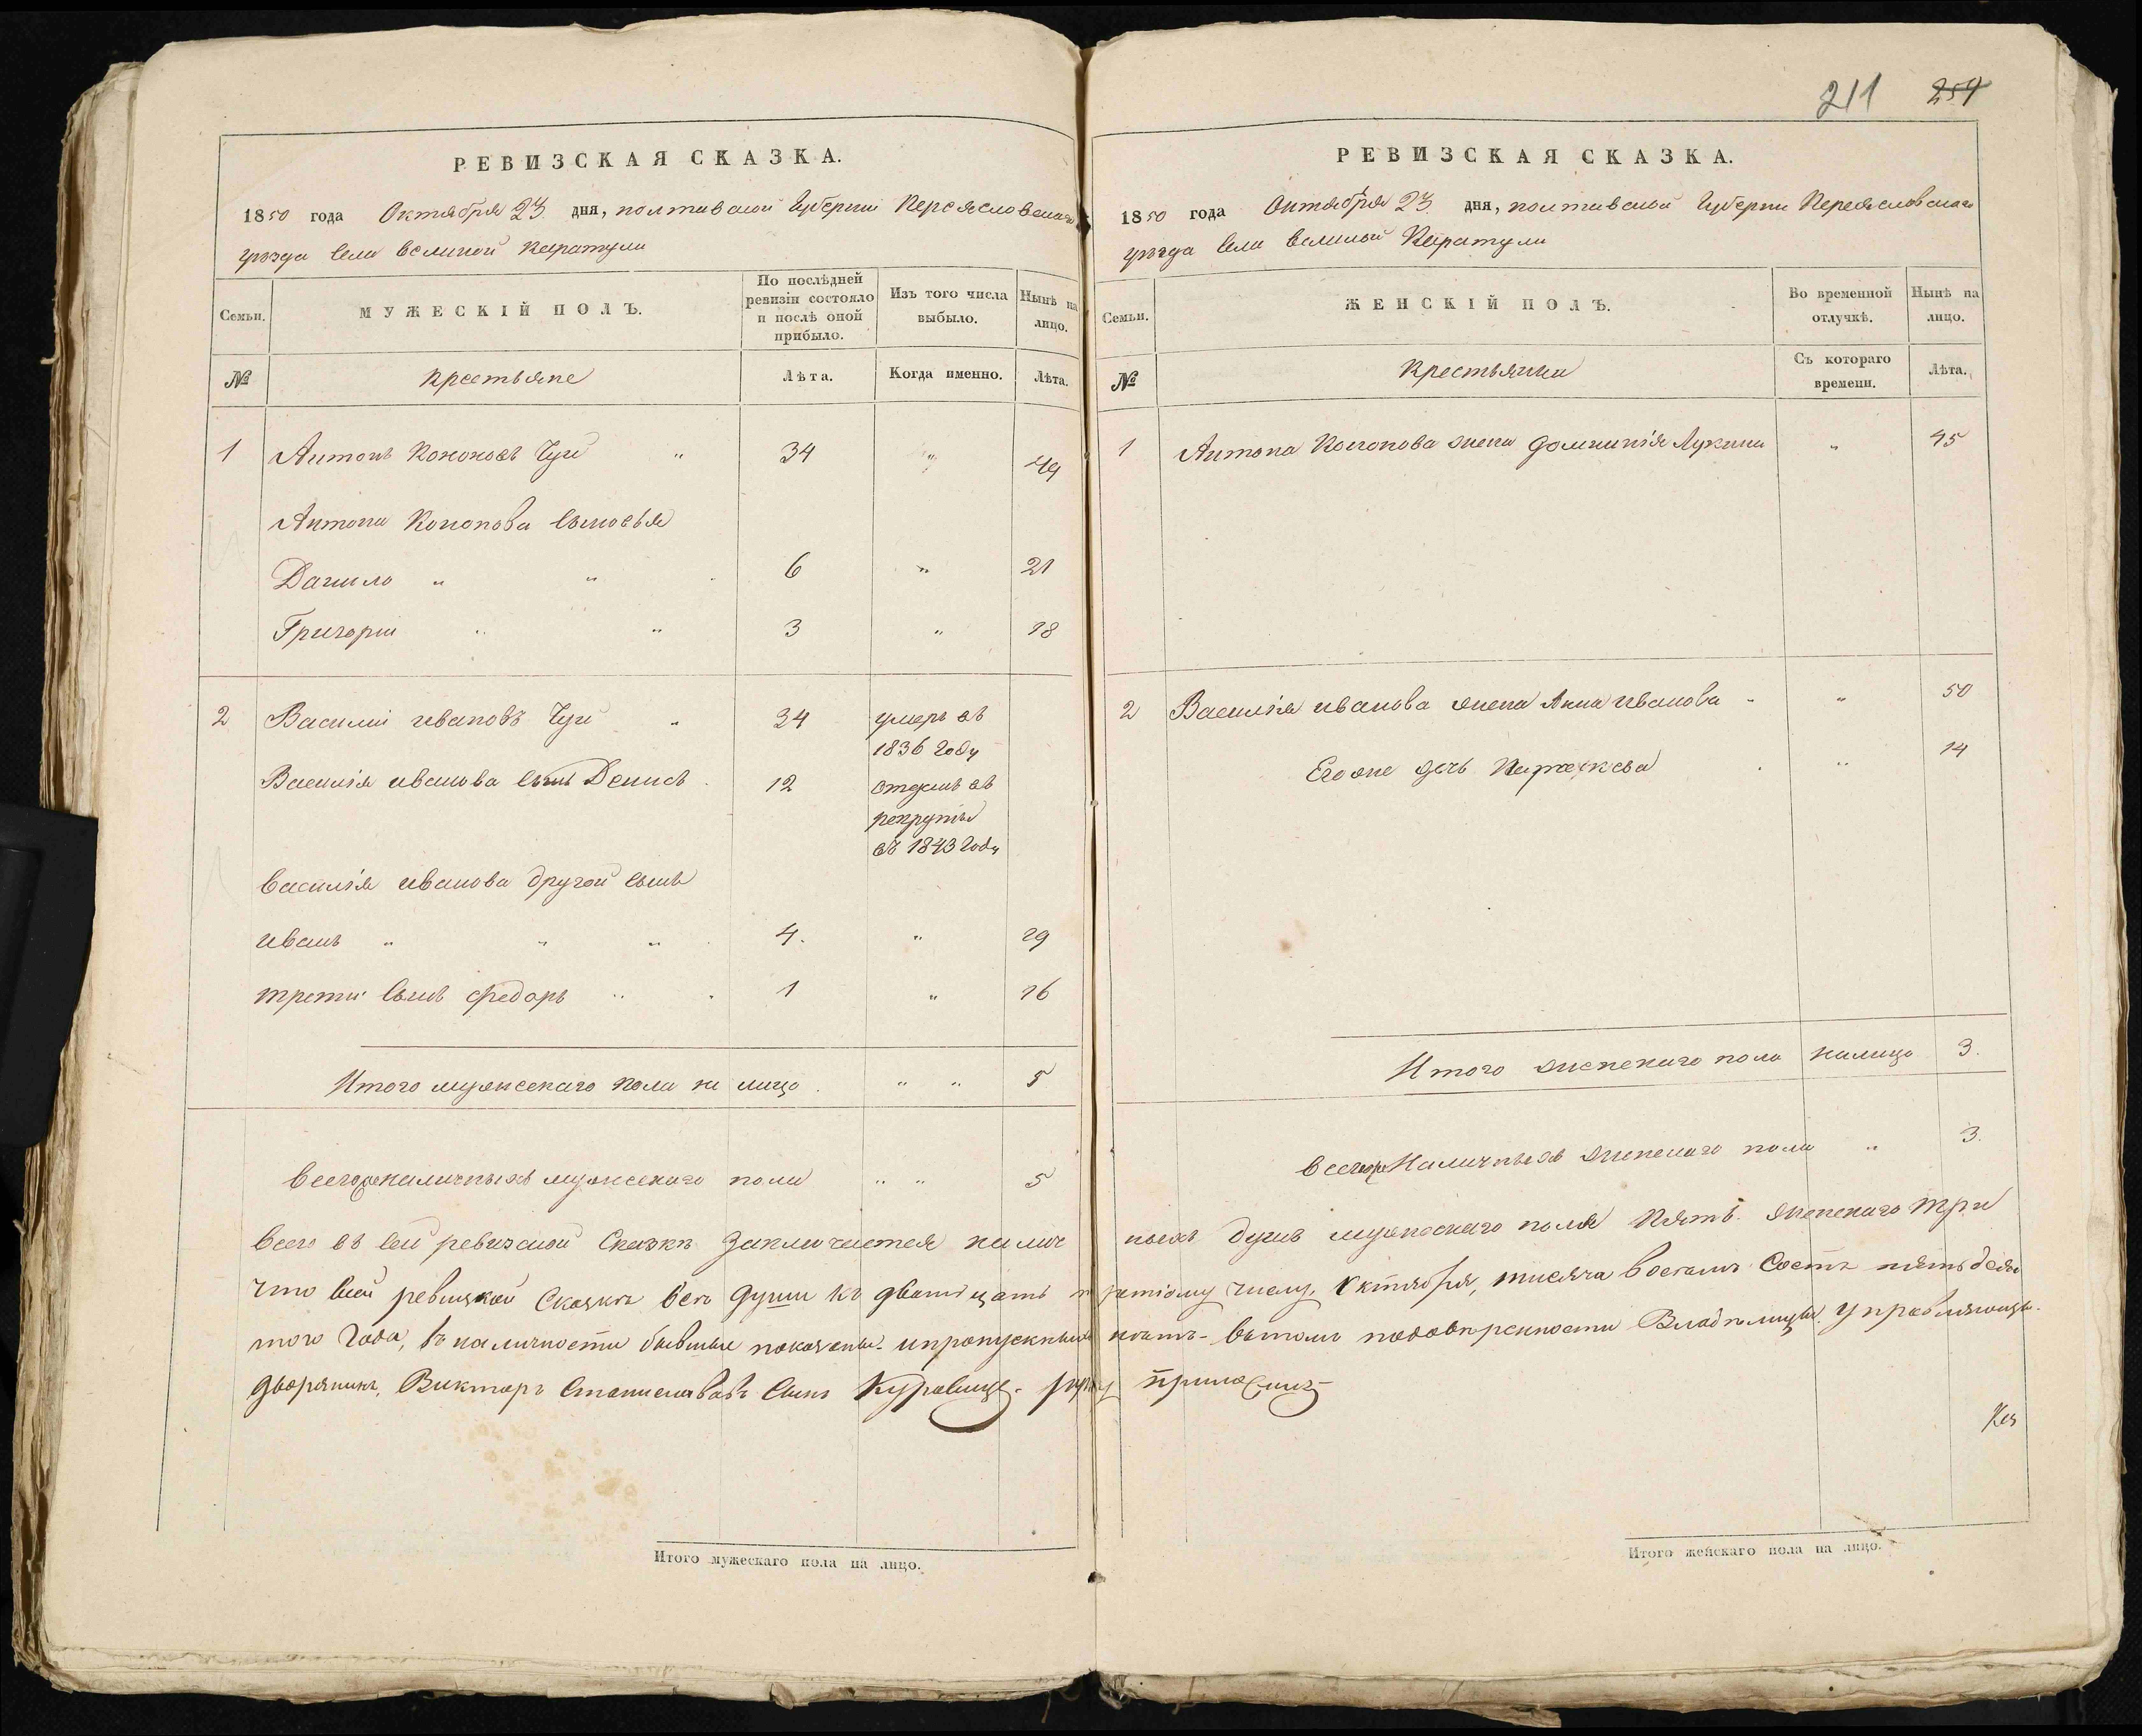 211 254
РЕВИЗСКАЯ СКАЗКА.
1850 года Октября 23 дня, полтавской Губернии Переясловскаго
уезда Села великой Каратули
Семьи.
МУЖЕСКІЙ ПОЛЪ.
По послѣдней ревизіи состояло и послѣ оной прибыло.
Изъ того числа выбыло.
Нынѣ на лицо.
№ крестьяне Лѣта. Когда именно. Лѣта.
1 Антонъ Кононовъ Чуй " 34 " 49
Антона Кононова Сыновья
Данило " " 6 " 21
Григорій " " 3 " 18
2 Василій ивановъ Чуй " 34 умеръ въ
1836 году
Василія иванова сынъ Денисъ 12 отданъ въ
рекруты
въ 1843 году
Василія иванова другой сынъ
иванъ " " " 4. " 19
третий Сынъ федоръ " 1 " 16
Итого мужескаго пола на лицо " " 5
Всего наличныхъ мужескаго пола " " 5
Всего въ сей ревизской Сказкѣ Заключается налич
что Сей ревизкой Сказкѣ Все души къ дватцать т
того Года, въ наличности бывшые показаны. и пропускныхъ
дворянинъ, Викторъ Станиславовъ Сынъ
РЕВИЗСКАЯ СКАЗКА.
1850 года Октября 23 дня, полтавской Губернии Переясловскаго
уезда Села великой Каратули
Семьи.
ЖЕНСКІЙ ПОЛЪ.
Во временной отлучкѣ.
Нынѣ на лицо.
№ Крестьянки Съ котораго времени. Лѣта.
1 Антона Кононова жена Домникія Лукина " 45
2 Василія иванова жена Анна иванова " " 50
Его же дочь Параскева " 14
Итого женскаго пола налицо 3.
Всего Наличныхъ женскаго пола " 3.
ныхъ душъ мужескаго пола Пять. женскаго три
ретіому числу, Октября, тисяча восемъ Сотъ пятьдеся
нѣтъ
приложилъ
Итого мужескаго пола на лицо.
Итого женскаго пола на лицо.